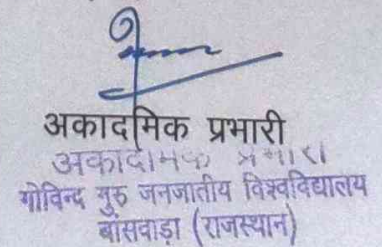 अकादमिक प्रभारी
अकादमिक प्रभारी
गोविन्द गुरु जनजातीय विश्वविद्यालय
बांसवाड़ा (राजस्थान)